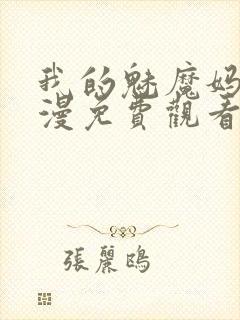 我的魅魔妈
漫免費觀看
張麗鴎